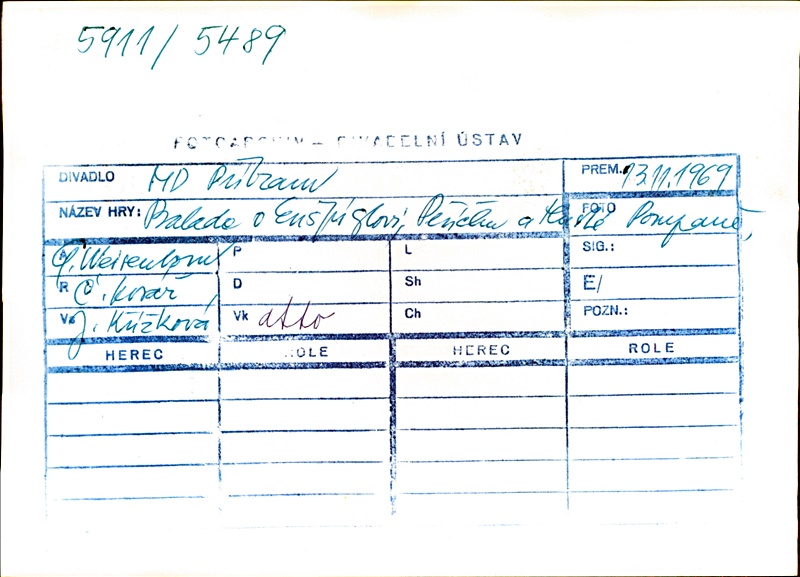 5911/5489
FOTOARCHIV – DIVADELNÍ ÚSTAV
DIVADLO MD Příbram PREM. 13.11.1969
NÁZEV HRY: Balada o Enšpíglovi, a Pompaně, FOTO
G. Weisenborn P L SIG.:
R Č. Kovář, D Sh E/
J. Křížková Vk atto Ch POZN.:
HEREC ROLE HEREC ROLE